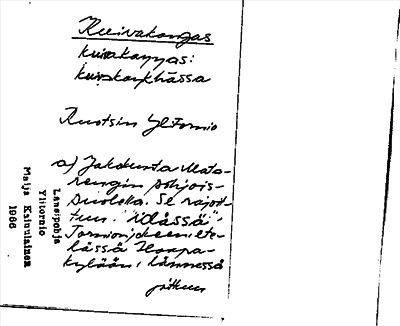 Kuivakangas
kuivakaŋŋas:
kuivakaŋkhässa
Ruotsin Ylitornio
a) Jakokunta Mata-
rengin pohjois-
puolella. Se rajoit-
tuu "idässä"
Tornionjokeen, ete-
lässä Haapa-
kylään, lännessä
jatkuu
Länsipohja
Ylitornio
Maija Koinulainen
1906